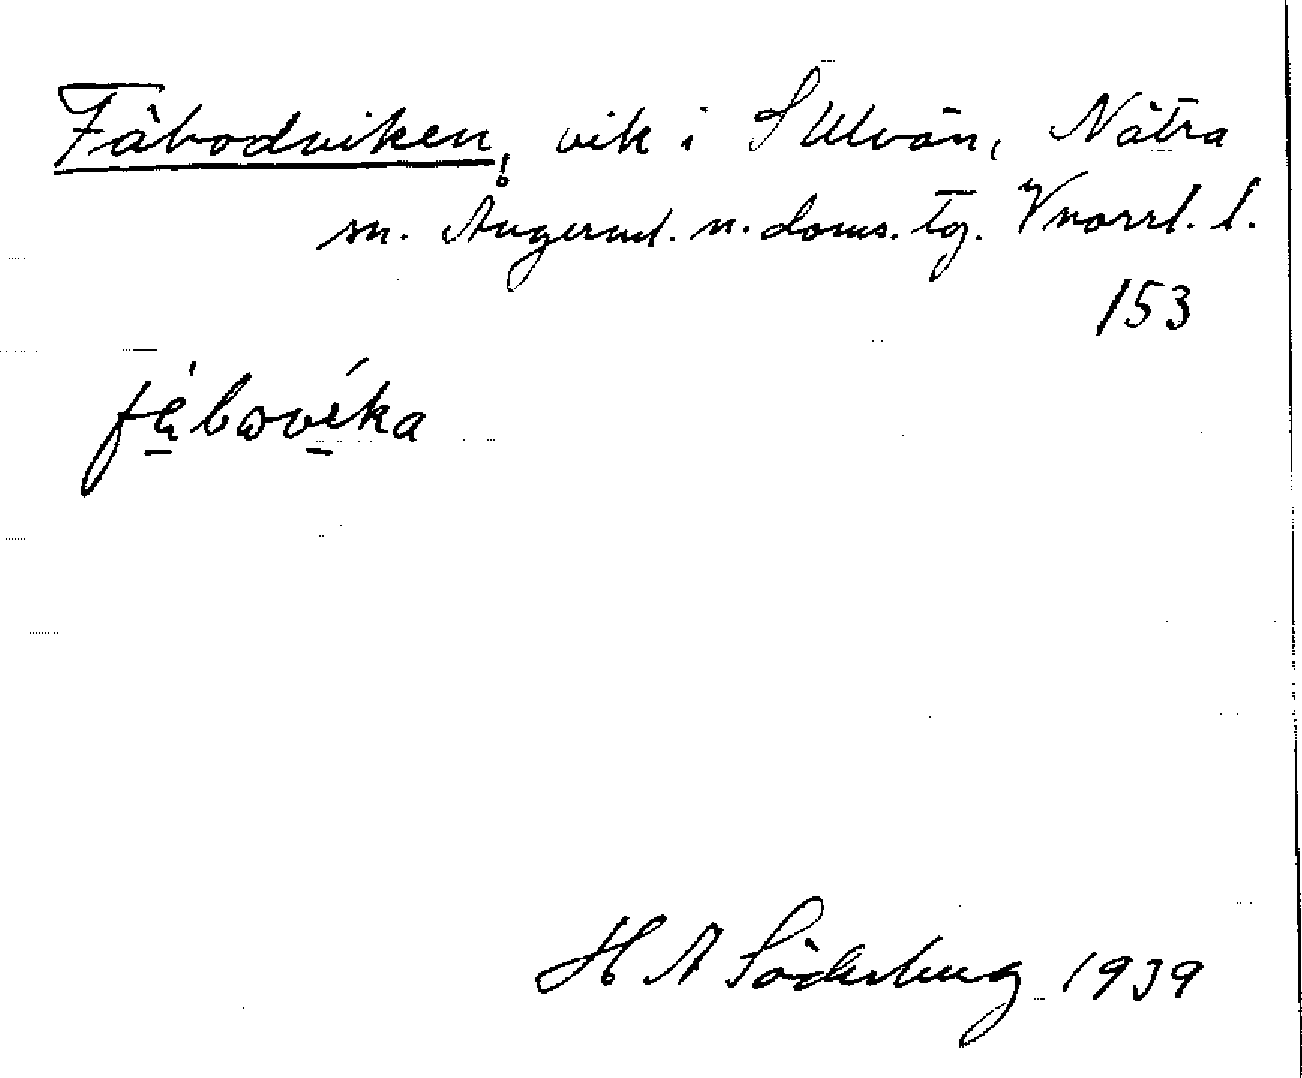 Fäbodviken, vik i S Ulvön, Nätra
sn. Ångerml. n. doms. tg. Vnorrl. l.
153
H A Söderberg 1939